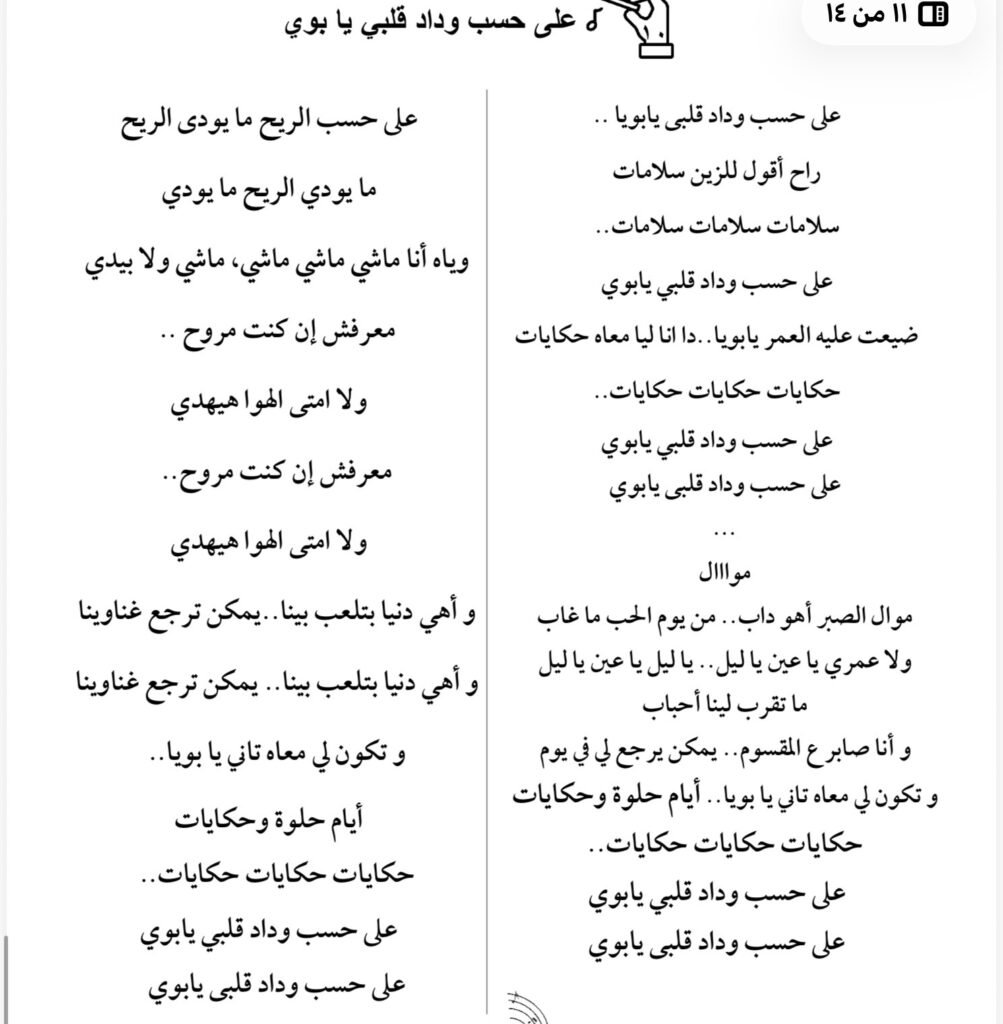 ١١ من ١٤
على حسب وداد قلبي يا بوي
على حسب وداد قلبى يابويا ..
راح أقول للزين سلامات
سلامات سلامات سلامات..
على حسب وداد قلبي يابوي
ضيعت عليه العمر يابويا..دا انا ليا معاه حكايات
حكايات حكايات حكايات..
على حسب وداد قلبي يابوي
على حسب وداد قلبى يابوي
...
موااال
موال الصبر أهو داب.. من يوم الحب ما غاب
ولا عمري يا عين يا ليل.. يا ليل يا عين يا ليل
ما تقرب لينا أحباب
و أنا صابر ع المقسوم.. يمكن يرجع لي في يوم
و تكون لي معاه تاني يا بويا.. أيام حلوة وحكايات
حكايات حكايات حكايات..
على حسب وداد قلبي يابوي
على حسب وداد قلبى يابوي
على حسب الريح ما يودى الريح
ما يودي الريح ما يودي
وياه أنا ماشي ماشي ماشي، ماشي ولا بيدي
معرفش إن كنت مروح ..
ولا امتى الهوا هيهدي
معرفش إن كنت مروح..
ولا امتى الهوا هيهدي
و أهي دنيا بتلعب بينا..يمكن ترجع غناوينا
و أهي دنيا بتلعب بينا.. يمكن ترجع غناوينا
و تكون لي معاه تاني يا بويا..
أيام حلوة وحكايات
حكايات حكايات حكايات..
على حسب وداد قلبي يابوي
على حسب وداد قلبى يابوي